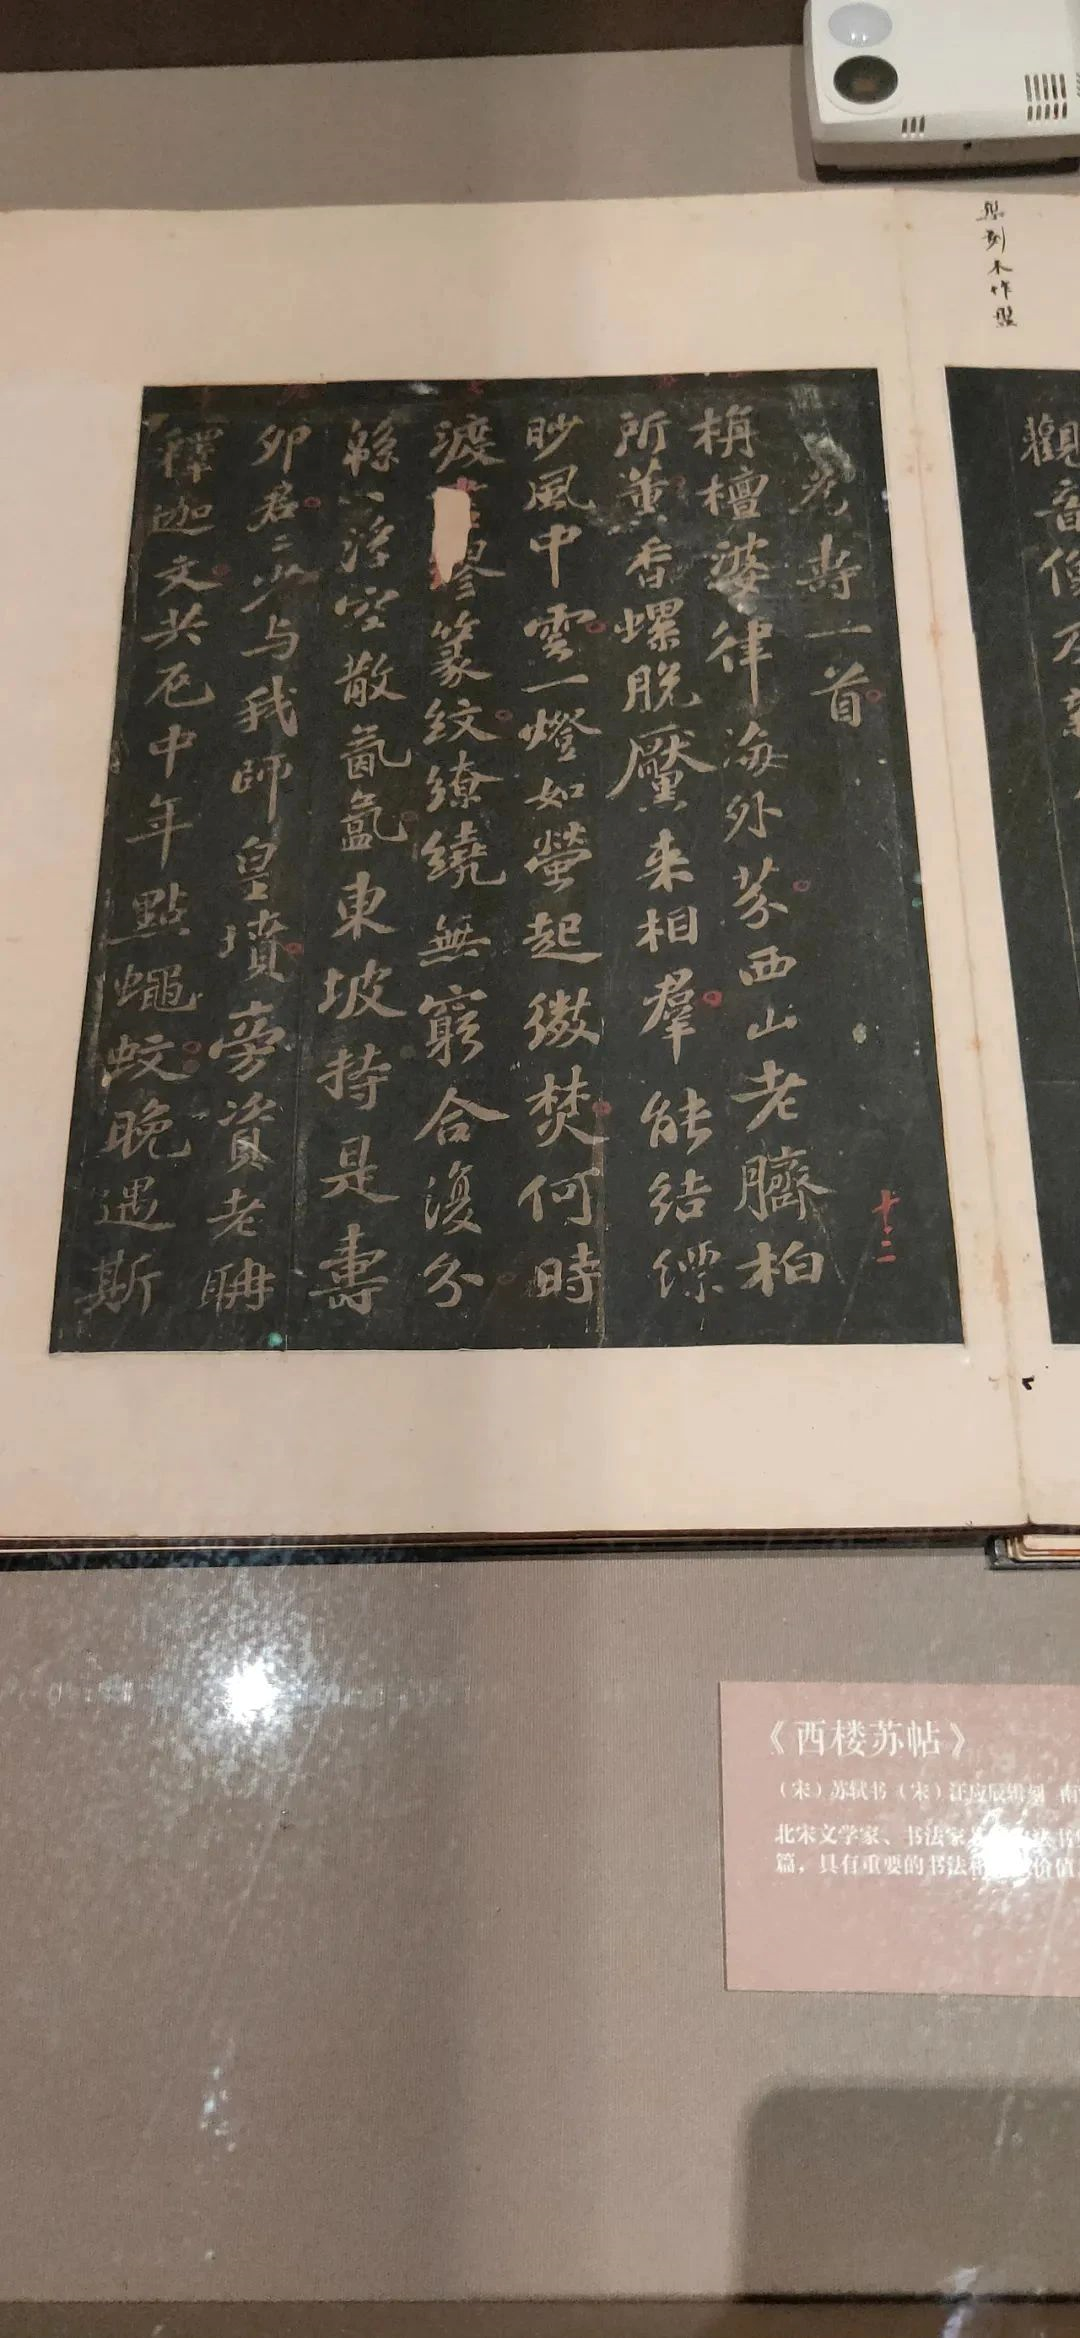 刻木作盤
觀音像及新
壽一首
栴檀婆律海外芬西山老臍柏
所薰香螺脫黶来相羣能結縹
眇風中雲一燈如螢起微焚何時
渡繆篆紋繚繞無窮合復分
緜〻浮空散氤氳東坡持是壽
卯君〻少与我師皇墳旁資老聃
釋迦文共厄中年點蠅蚊晚遇斯
十二
《西楼苏帖》
（宋）苏轼书（宋）汪应辰辑刻 南
北宋文学家、书法家
篇，具有重要的书法和价值